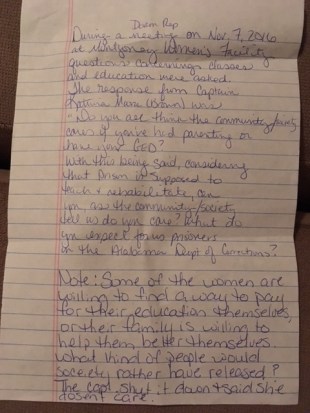 Dorm Rep
During a meeting on Nov, 7, 2016
at Montgomery Women's Facility
questions concernings classes
and education were asked.
The response from Captain
Katrina (Brown) was
"Do you all think the community/society
cares if you've had parenting or
have your GED?
With this being said, considering
that Prison is supposed to
teach & rehabilitate, can
you, as the community/society
tell us do you care? What do
you expect from us prisoners
in the Alabama Dept of Corrections?
Note: Some of the women are
willing to find a way to pay
for their education themselves,
or their family is willing to
help them better themselves.
What kind of people would
society rather have released?
The capt. shut it down & said she
dosen't care.